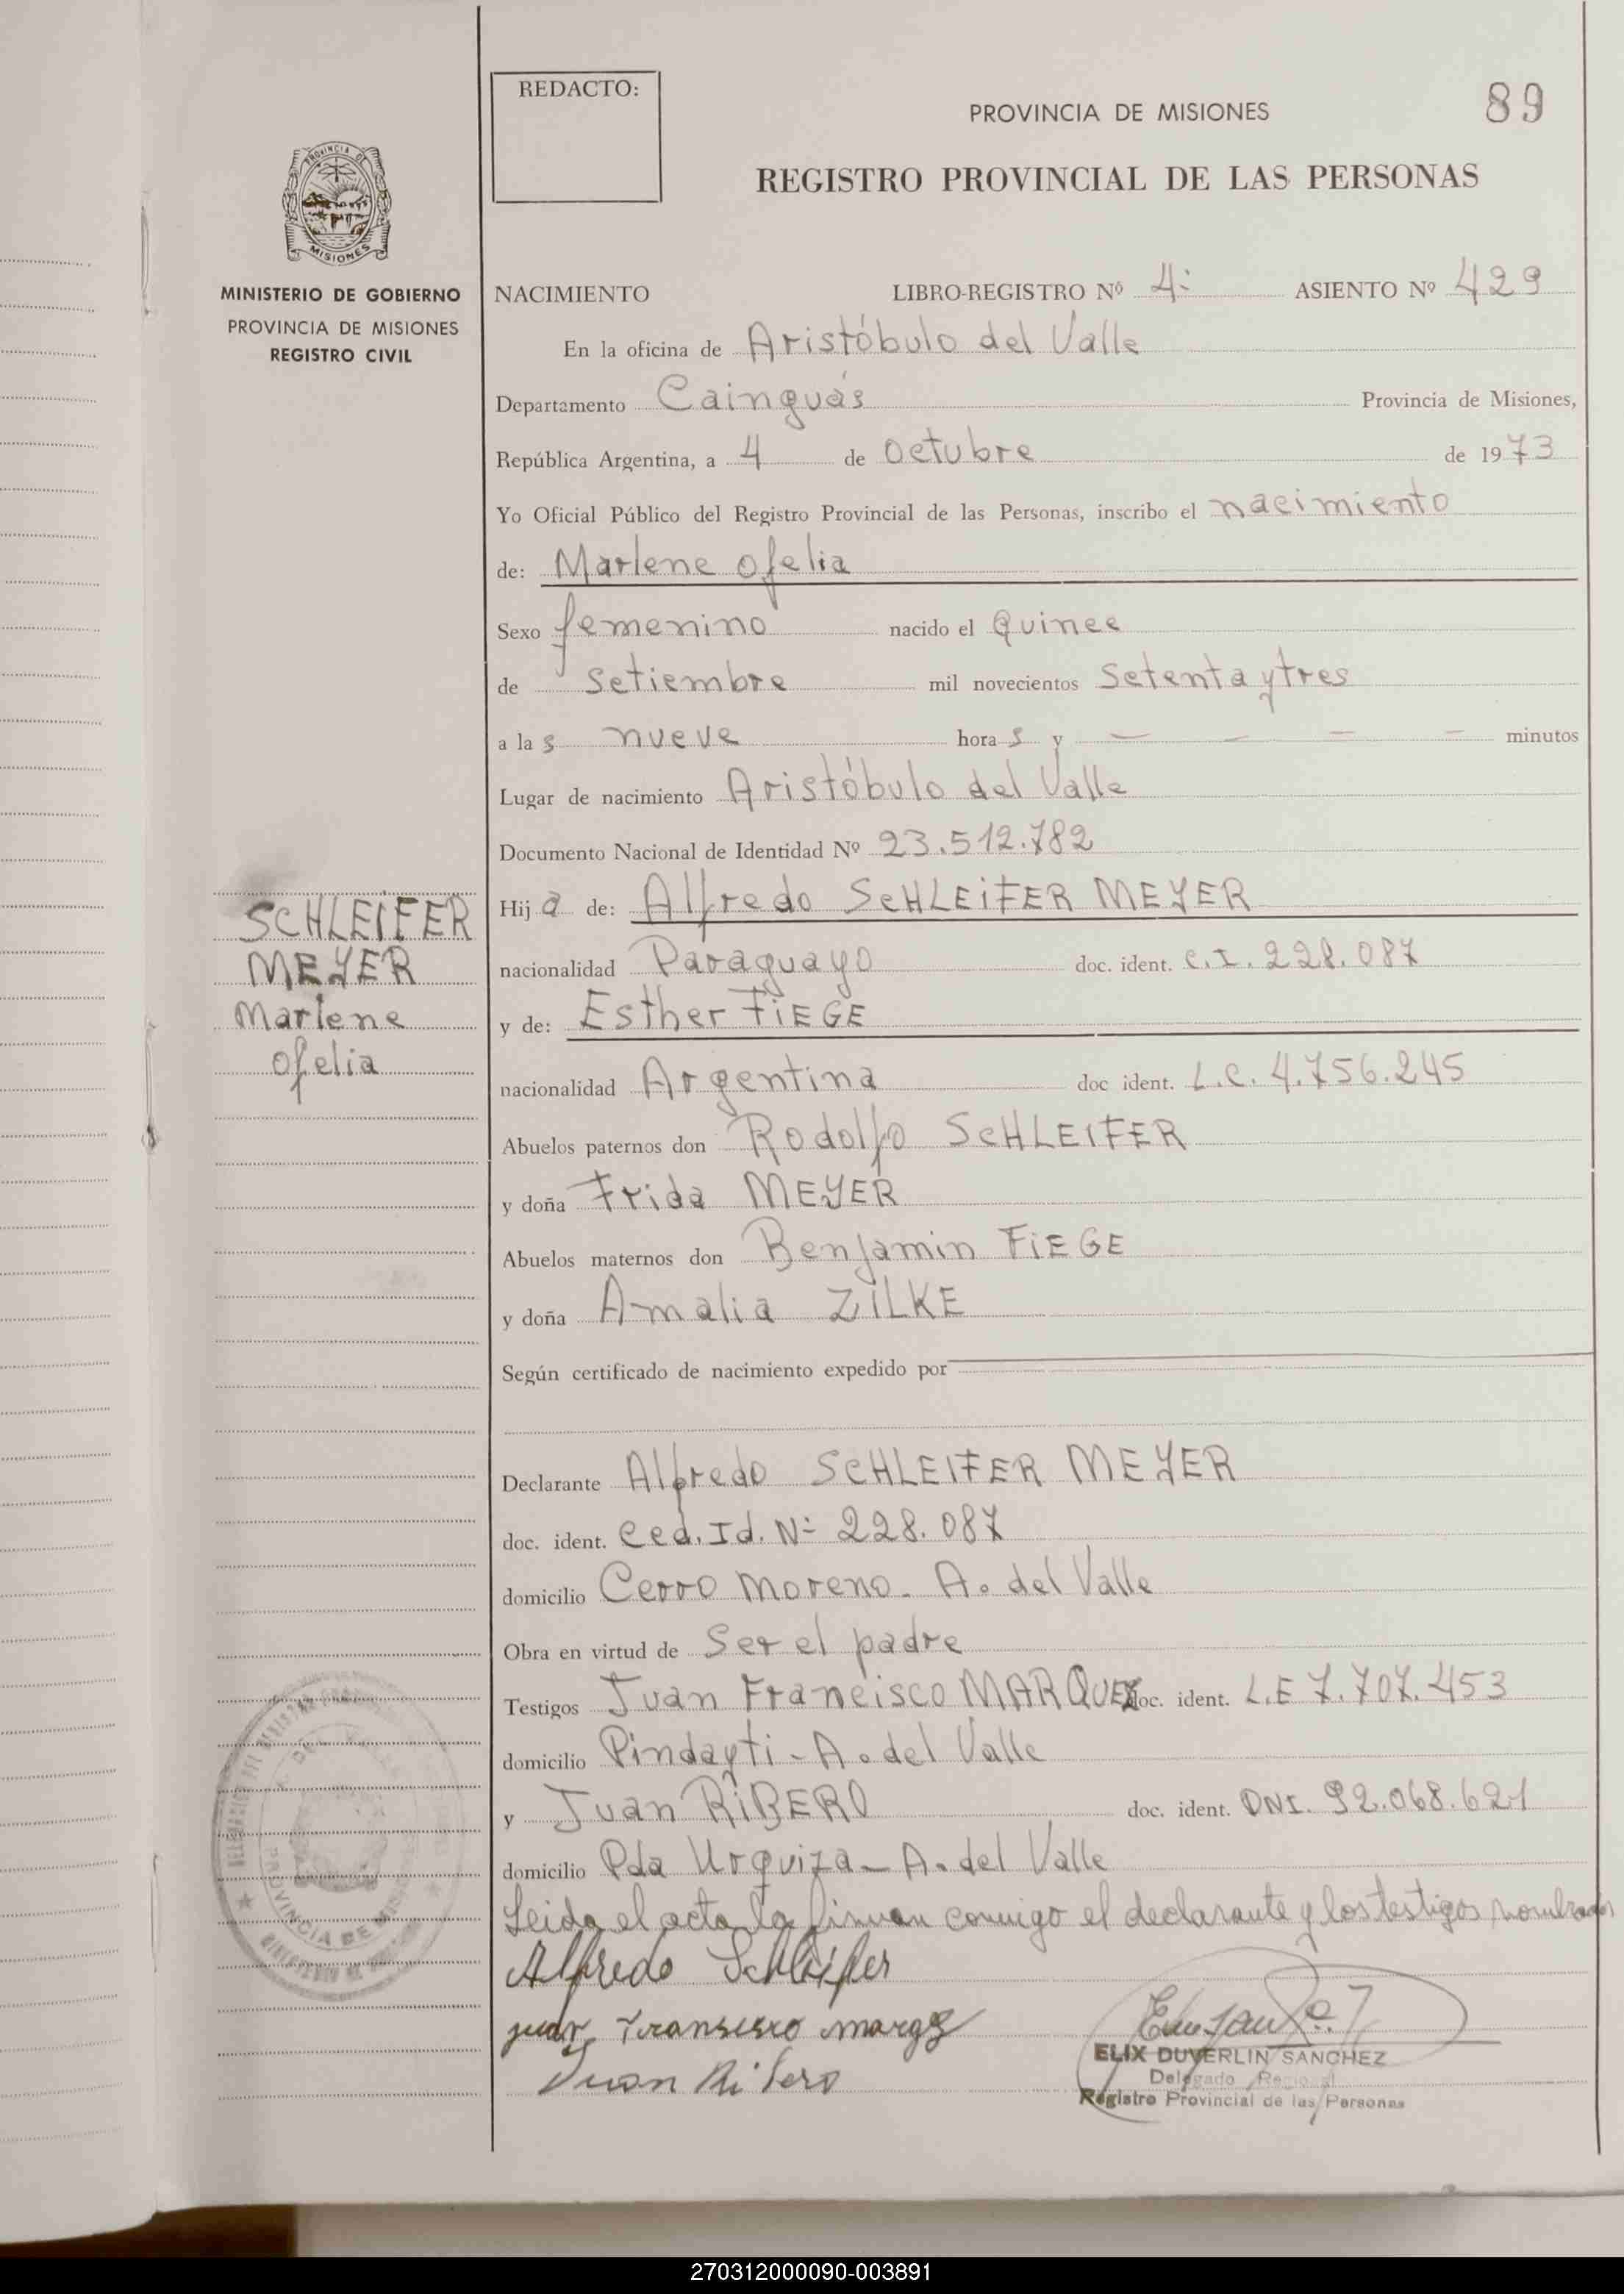 REDACTO:
89
PROVINCIA DE MISIONES
REGISTRO PROVINCIAL DE LAS PERSONAS
PROVINCIA DE
MISIONES
MINISTERIO DE GOBIERNO
PROVINCIA DE MISIONES
REGISTRO CIVIL
NACIMIENTO LIBRO-REGISTRO Nº 4: ASIENTO Nº 429
En la oficina de Aristóbulo del Valle
Departamento Cainguás Provincia de Misiones,
República Argentina, a 4 de Octubre de 1973
Yo Oficial Público del Registro Provincial de las Personas, inscribo el nacimiento
de: Marlene Ofelia
Sexo femenino nacido el Quince
de Setiembre mil novecientos Setenta y tres
a las nueve horas y — — — — minutos
Lugar de nacimiento Aristóbulo del Valle
Documento Nacional de Identidad Nº 23.512.782
SCHLEIFER
MEYER
Marlene
Ofelia
Hija de: Alfredo SCHLEIFER MEYER
nacionalidad Paraguayo doc. ident. C.I. 228.087
y de: Esther FIEGE
nacionalidad Argentina doc ident. L.C. 4.756.245
Abuelos paternos don Rodolfo SCHLEIFER
y doña Frida MEYER
Abuelos maternos don Benjamin FIEGE
y doña Amalia ZILKE
Según certificado de nacimiento expedido por
Declarante Alfredo SCHLEIFER MEYER
doc. ident. Ced. Id. Nº 228.087
domicilio Cerro Moreno - A. del Valle
Obra en virtud de Ser el padre
Testigos Juan Francisco MARQUEZ doc. ident. L.E 7.707.453
domicilio Pindayti - A. del Valle
y Juan RIBERO doc. ident. DNI. 92.068.621
domicilio Pda Urquiza - A. del Valle
Leida el acta la firman conmigo el declarante y los testigos nombrados
Alfredo Schleifer
Juan Fransisco Marqz
Juan Ribero
ELIX DUVERLIN SANCHEZ
Delegado
Registro Provincial de las Personas
PROVINCIA DE MISIONES
270312000090-003891